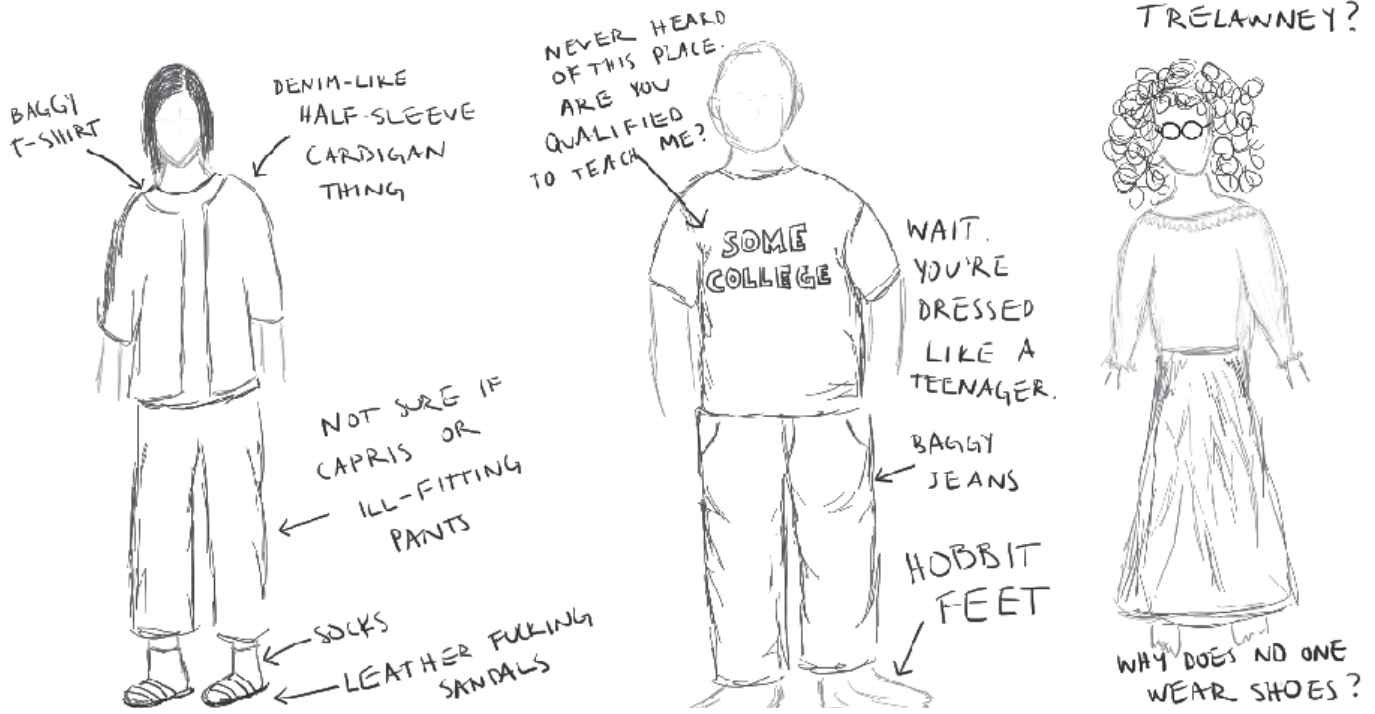 BAGGY
T-SHIRT
DENIM-LIKE
HALF-SLEEVE
CARDIGAN
THING
NOT SURE IF
CAPRIS OR
ILL-FITTING
PANTS
SOCKS
LEATHER FUCKING
SANDALS
NEVER HEARD
OF THIS PLACE.
ARE YOU
QUALIFIED
TO TEACH ME?
SOME
COLLEGE
WAIT.
YOU'RE
DRESSED
LIKE A
TEENAGER.
BAGGY
JEANS
HOBBIT
FEET
TRELAWNEY?
WHY DOES NO ONE
WEAR SHOES?